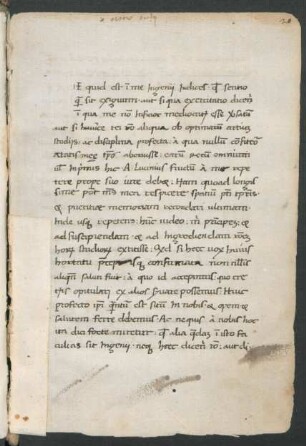 E quid est i me Ingenij Iudices q̃ sentio
q̃ sit exiguum aut si qua exercitatio dicen̄
i qua me nō Infitior mediocriter esse
aut si huiusce rei rō aliqua ab optimarū artiū
studijs ac disciplina profecta a qua nullū confiteor
aetatis meę tp̄us abhoruisse earū rerū omnium
Inprimis hic A Lucinius fructū a me repe
tere prope suo iure debet Nam quoad longis
sime pōt mēs mea respicere spatiū pret̄iti tp̄ris
et pueritiae memoriam recordari ultimam
Inde usq̨ repetens hūc video m̄ principē
ad suscipiendam et ad Ingrediendam rōnē
horū studiorū extitisse Qd si hęc vox huius
hortatu preceptisq̨ confirmata nonnullis
aliqn̄ saluti fuit a quo id accepimus quo ce
teris opitulari ex alios seruare possemus Huic
profecto ipi quantū est situm In nobis et opem et
salutem ferre debemus Ac ne quis a nobis hoc
ita dici forte miretur q̃ alia quędā i isto fa
cultas sit Ingenij neq̨ hęc dicendi rō aut di